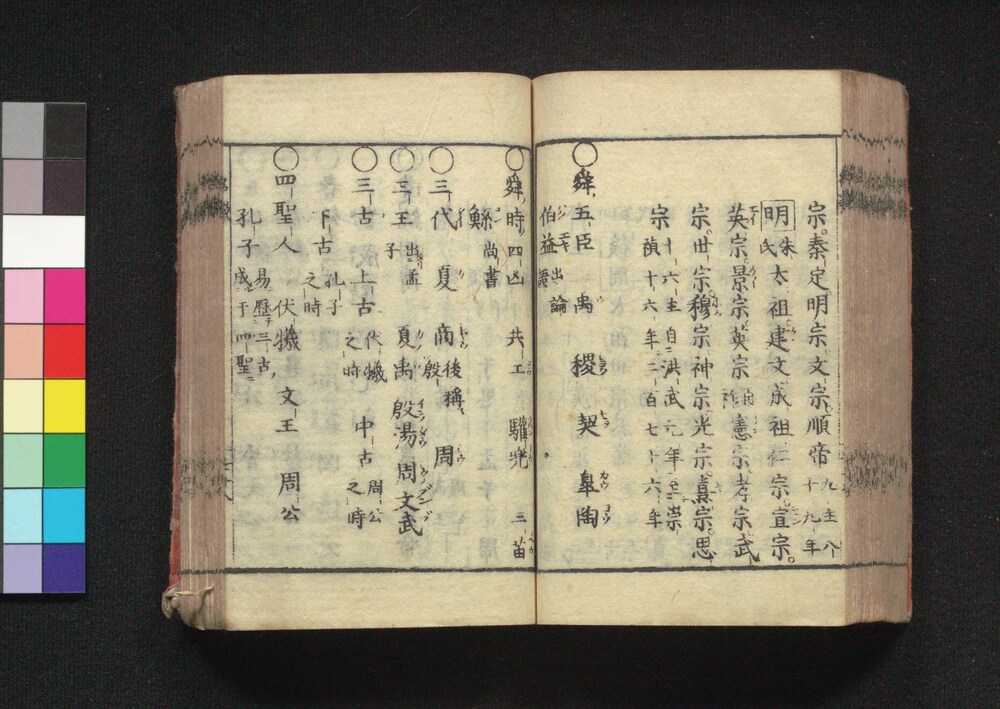 宗秦定明宗文宗順帝 九主八十九年
明 朱氏 太祖建文成祖仁宗宣宗
英宗景宗英宗 憲宗孝宗武
宗世宗穆宗神宗光宗熹宗思
宗 十六主自洪武元年至崇禎十六年二百七十六年
○舜五臣 禹 稷 契 皐陶
伯益 出論語
○舜時四凶 共工 驩兜 三苗
鯀 尚書
○三代 夏 商 後稱殷 周
○三王 出孟子 夏禹 殷湯 周文武
○三古 上古 伏犧之時 中古 周公之時
下古 孔子之時
○四聖人 伏犧 文王 周公
孔子 易歴三古成于四聖